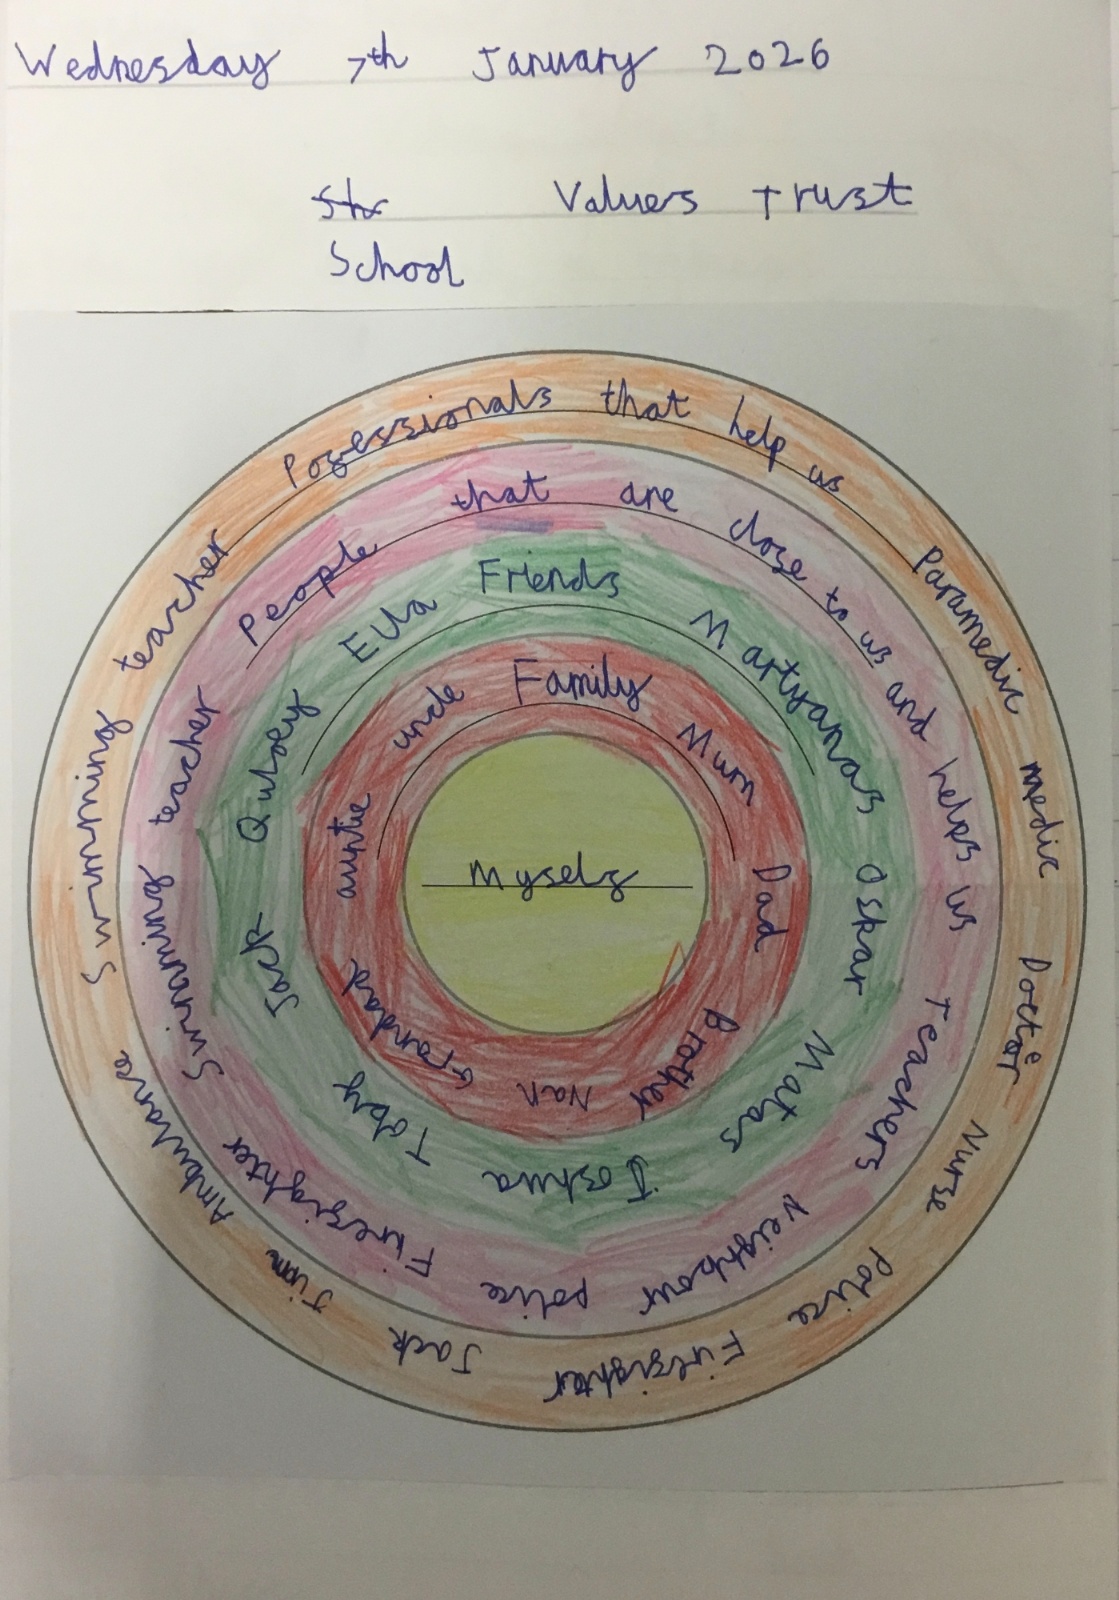 Wednesday 7th January 2026
Values Trust
School
Pofessionals that help us
Paramedic medic Doctor Nurse Police Firefighter Jack Jum Ambulance Swimming teacher
People that are close to us and helps us
Teachers Neighbour police Firefighter Swimming teacher
Friends
Martyanas Oskar Matas Joshua Toby Jack Qulsey Ella
Family
Mum Dad Brother Nan Grandad auntie uncle
Myself